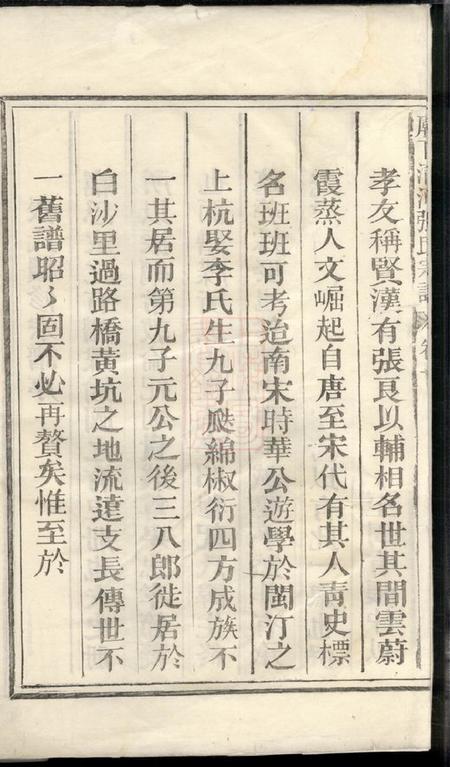 清河張氏宗譜
孝友稱賢漢有張良以輔相名世其間雲蔚
霞蒸人文崛起自唐至宋代有其人靑史標
名班班可考迨南宋時華公遊學於閩汀之
上杭娶李氏生九子瓞綿椒衍四方成族不
一其居而第九子元公之後三八郎徙居於
白沙里過路橋黃坑之地流遠支長傳世不
一舊譜昭〻固不必再贅矣惟至於